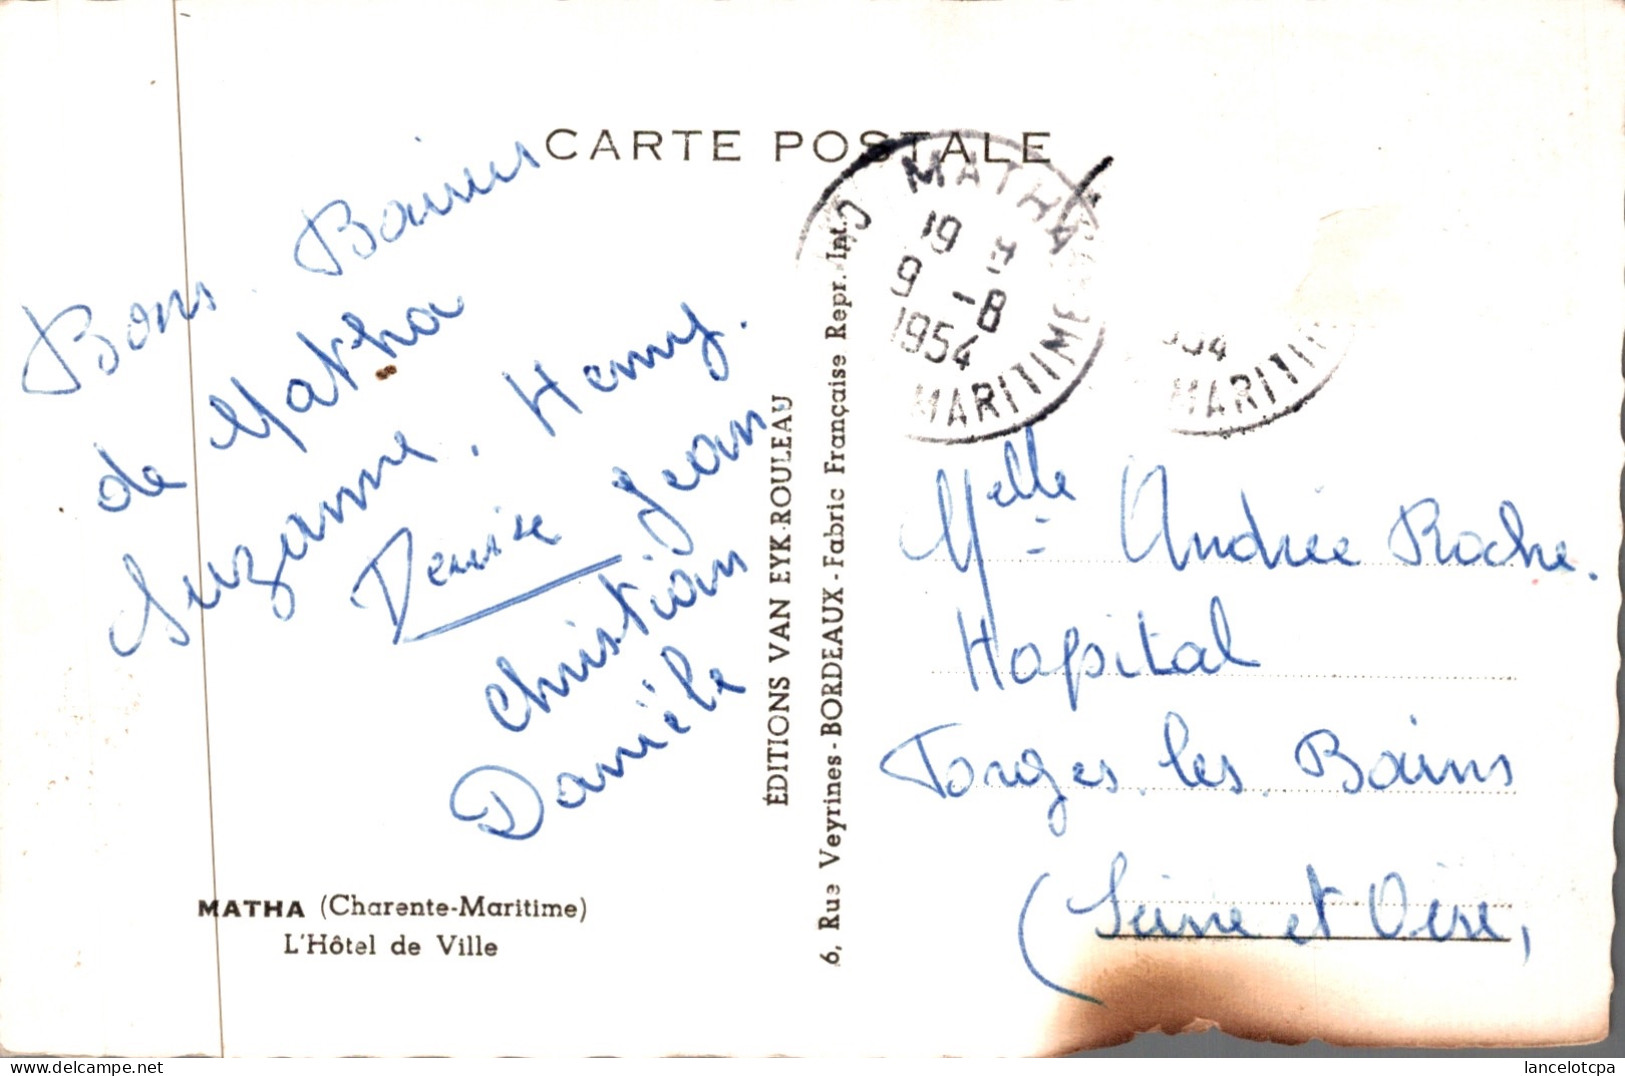 CARTE POSTALE
Bons Baisers
de Matha
Suzanne, Henry.
Denise Jean
Christian
Danièle
MATHA (Charente-Maritime)
L'Hôtel de Ville
ÉDITIONS VAN EYK-ROULEAU
6, Rue Veyrines - BORDEAUX - Fabric Française Repr. Int.
MATHA
19 H
9 -8
1954
MARITIME
954
MARITIM
Melle Andrée Roche.
Hopital
Forges les Bains
(Seine et Oise,
lancelotcpa